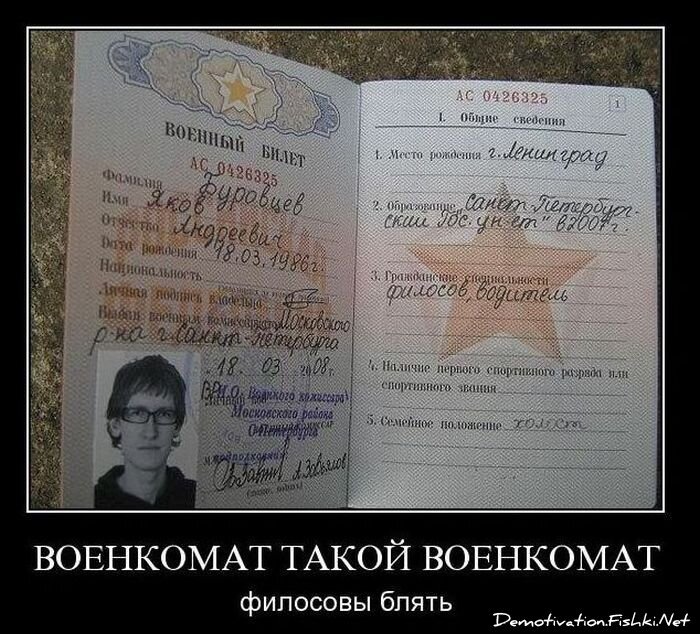 ВОЕННЫЙ БИЛЕТ
АС 0426325
Фамилия Буровцев
Имя Яков
Отчество Андреевич
Дата рождения 18.03.1986г.
Национальность
Личная подпись владельца
Выдан военным комиссариатом Московского
р-на г. Санкт-Петербурга
18. 03 2008г.
ВР.И.О. Военного комиссара
Московского района
С-Петербурга
подполковник
А.Завьялов
АС 0426325
1
I. Общие сведения
1. Место рождения г. Ленинград
2. Образование Санкт-Петербург-
ский Гос. ун-ет" в 2007г.
3. Гражданские специальности
филосов, водитель
4. Наличие первого спортивного разряда или
спортивного звания
5. Семейное положение холост
ВОЕНКОМАТ ТАКОЙ ВОЕНКОМАТ
филосовы блять
Demotivation.Fishki.Net